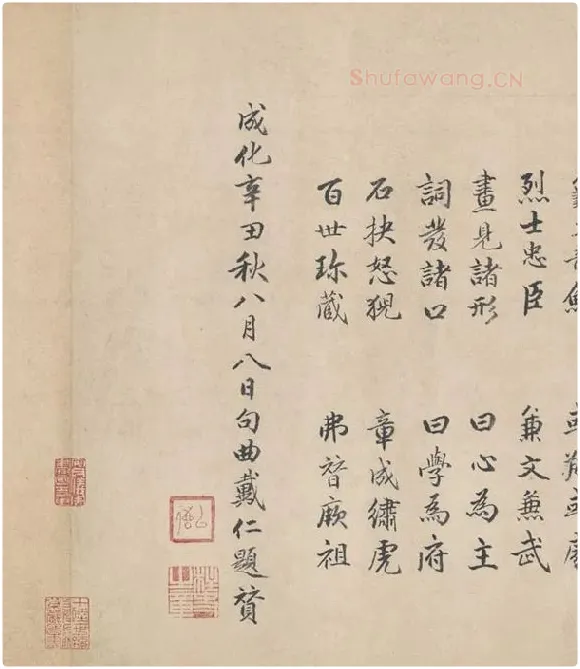 Shufawang.CN
烈士忠臣 兼文兼武
畫見諸形 曰心為主
詞發諸口 曰學為府
石抉怒猊 章成繡虎
百世珎藏 弗替厥祖
成化辛丑秋八月八日句曲戴仁題贊